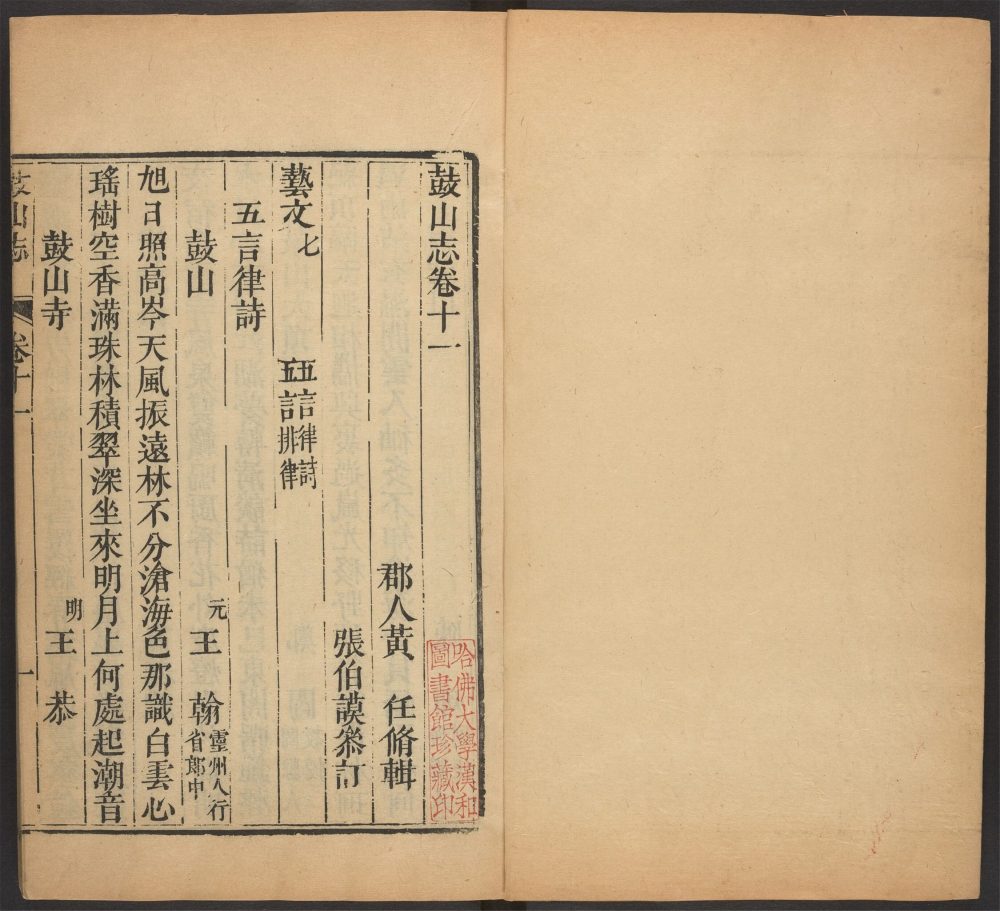 鼓山志卷十一
郡人黃　任脩輯
張伯謨叅訂
藝文七　五言律詩　五言排律
五言律詩
鼓山　元王　翰靈州人行省郎中
旭日照高岑天風振遠林不分滄海色那識白雲心
瑤樹空香滿珠林積翠深坐來明月上何處起潮音
鼓山寺　明王　恭
鼓山志　卷十一　一
哈佛大學漢和
圖書館珍藏印